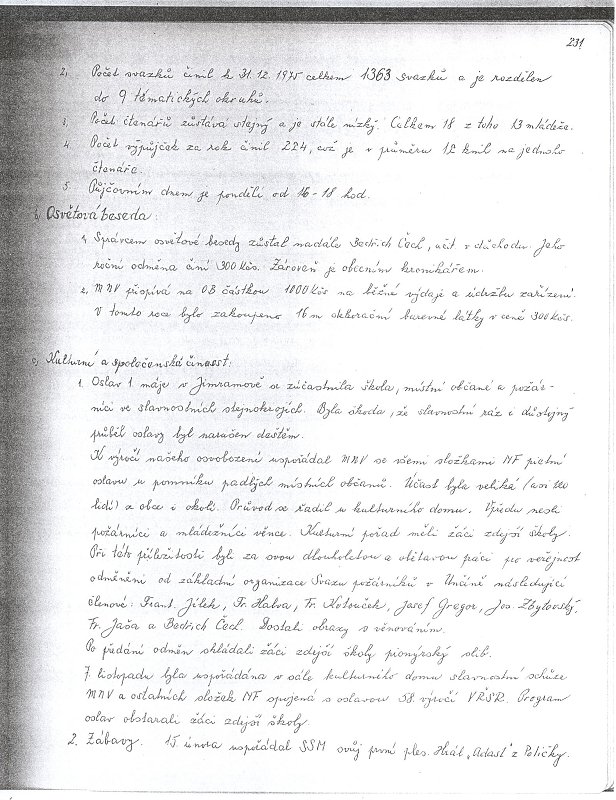 231
2. Počet svazků činil k 31.12.1975 celkem 1363 svazků a je rozdělen
do 9 tématických okruhů.
3. Počet čtenářů zůstává stejný a je stále nízký. Celkem 18 z toho 13 mládeže.
4. Počet výpůjček za rok činil 224, což je v průměru 12 knih na jednoho
čtenáře.
5. Půjčovním dnem je pondělí od 16-18 hod.
b) Osvětová beseda:
1. Správcem osvětové besedy zůstal nadále Bedrich Čech, učit. v důchodu. Jeho
roční odměna činí 300 Kčs. Zároveň je obecním kronikářem.
2. MNV přispívá na OB částkou 1000 Kčs na běžné výdaje a údržbu zařízení.
V tomto roce bylo zakoupeno 16 m dekorační barevné látky v ceně 300 Kčs.
c) Kulturní a společenská činnost:
1. Oslav 1. máje v Jimramově se zúčastnila škola, místní občané a požár-
níci ve slavnostních stejnokrojích. Byla škoda, že slavnostní ráz i důstojný
průběh oslavy byl narušen deštěm.
K výročí našeho osvobození uspořádal MNV se všemi složkami NF pietní
oslavu u pomníku padlých místních občanů. Účast byla veliká (asi
lidí) z obce i okolí. Průvod se řadil u kulturního domu. Vpředu nesli
požárníci a mládežníci věnce. Kulturní pořad měli žáci zdejší školy.
Při této příležitosti byli za svou dlouholetou a obětavou práci pro veřejnost
odměněni od základní organizace Svazu požárníků v Unčíně následující
členové: Frant. Jílek, Fr. Halva, Fr. Kotouček, Josef Gregor, Jos. Zbytovský,
Fr. Jaša a Bedrich Čech. Dostali obrazy s věnováním.
Po předání odměn skládali žáci zdejší školy pionýrský slib.
7. listopadu byla uspořádána v sále kulturního domu slavnostní schůze
MNV a ostatních složek NF spojená s oslavou 58. výročí VŘSR. Program
oslav obstarali žáci zdejší školy.
2. Zábavy. 15. února uspořádal SSM svůj první ples. Hrál „Adast" z Poličky.